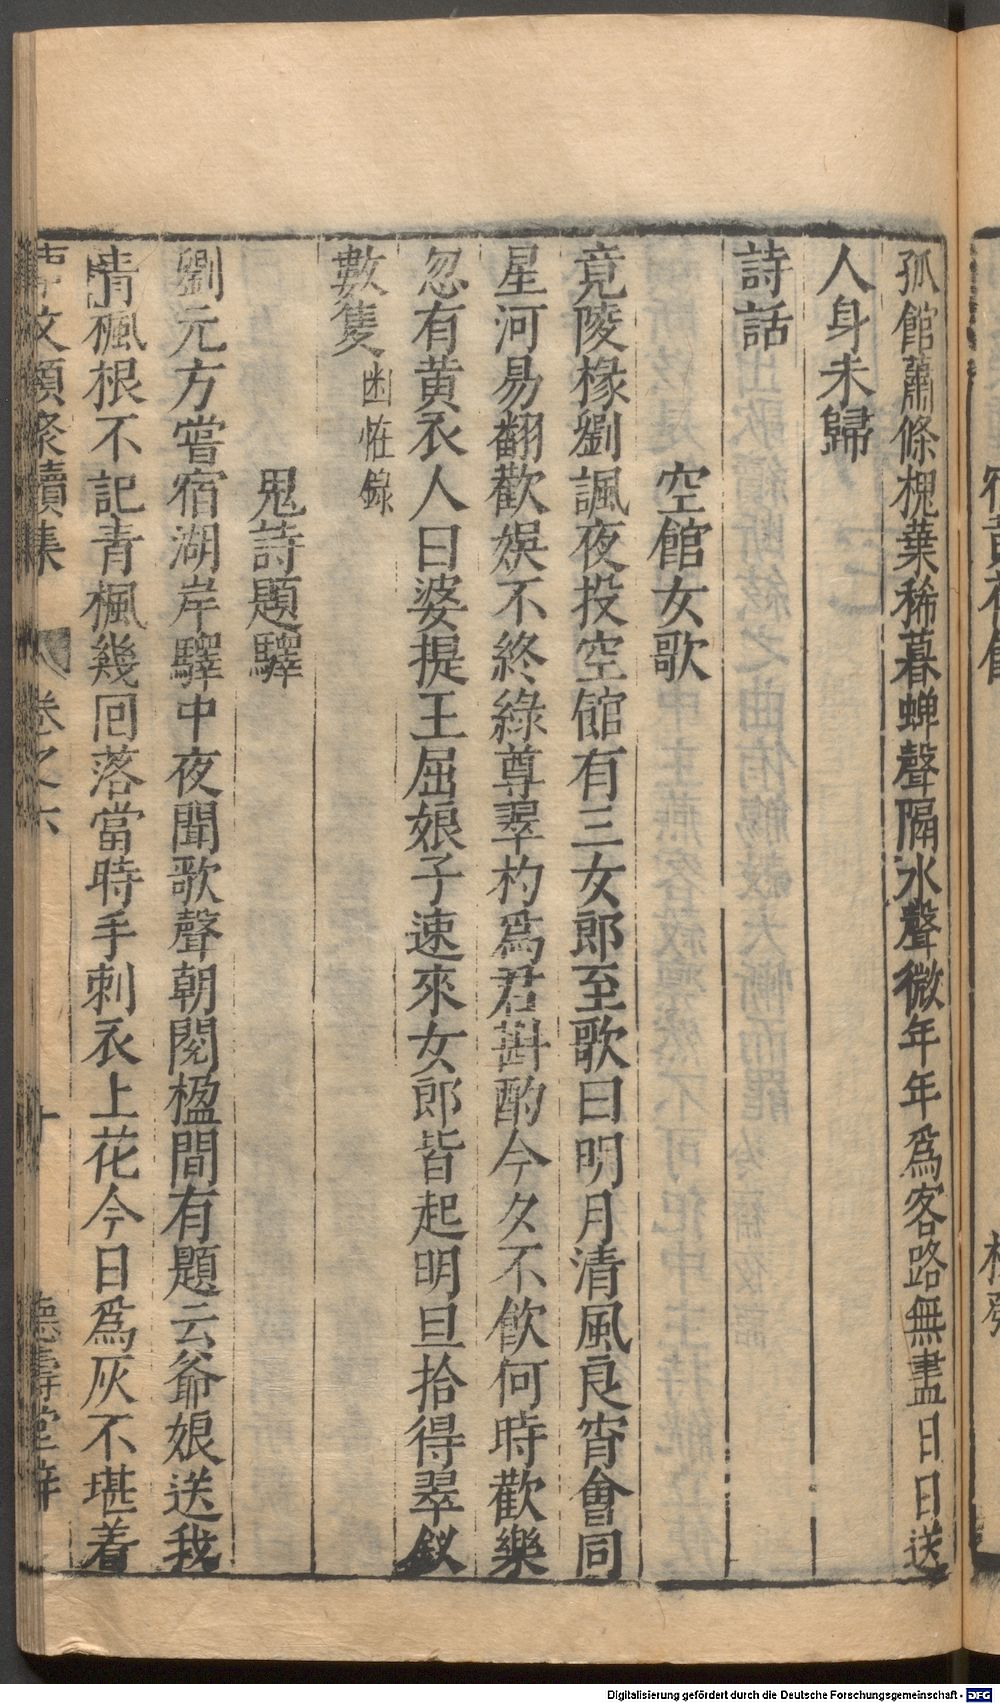 孤館蕭條槐葉稀暮蟬聲隔水聲微年年爲客路無盡日日送
人身未歸
詩話
空館女歌
竟陵椽劉諷夜投空館有三女郎至歌曰明月清風良宵會同
星河易翻歡娛不終綠尊翠杓爲君斟酌今夕不飲何時歡樂
忽有黃衣人曰婆提王屈娘子速來女郎皆起明旦拾得翠釵
數隻幽恠錄
鬼詩題驛
劉元方嘗宿湖岸驛中夜聞歌聲朝閱楹間有題云爺娘送我
青楓根不記青楓幾回落當時手刺衣上花今日爲灰不堪着
文類聚續集 卷之六 十 德壽堂梓
Digitalisierung gefördert durch die Deutsche Forschungsgemeinschaft - DFG